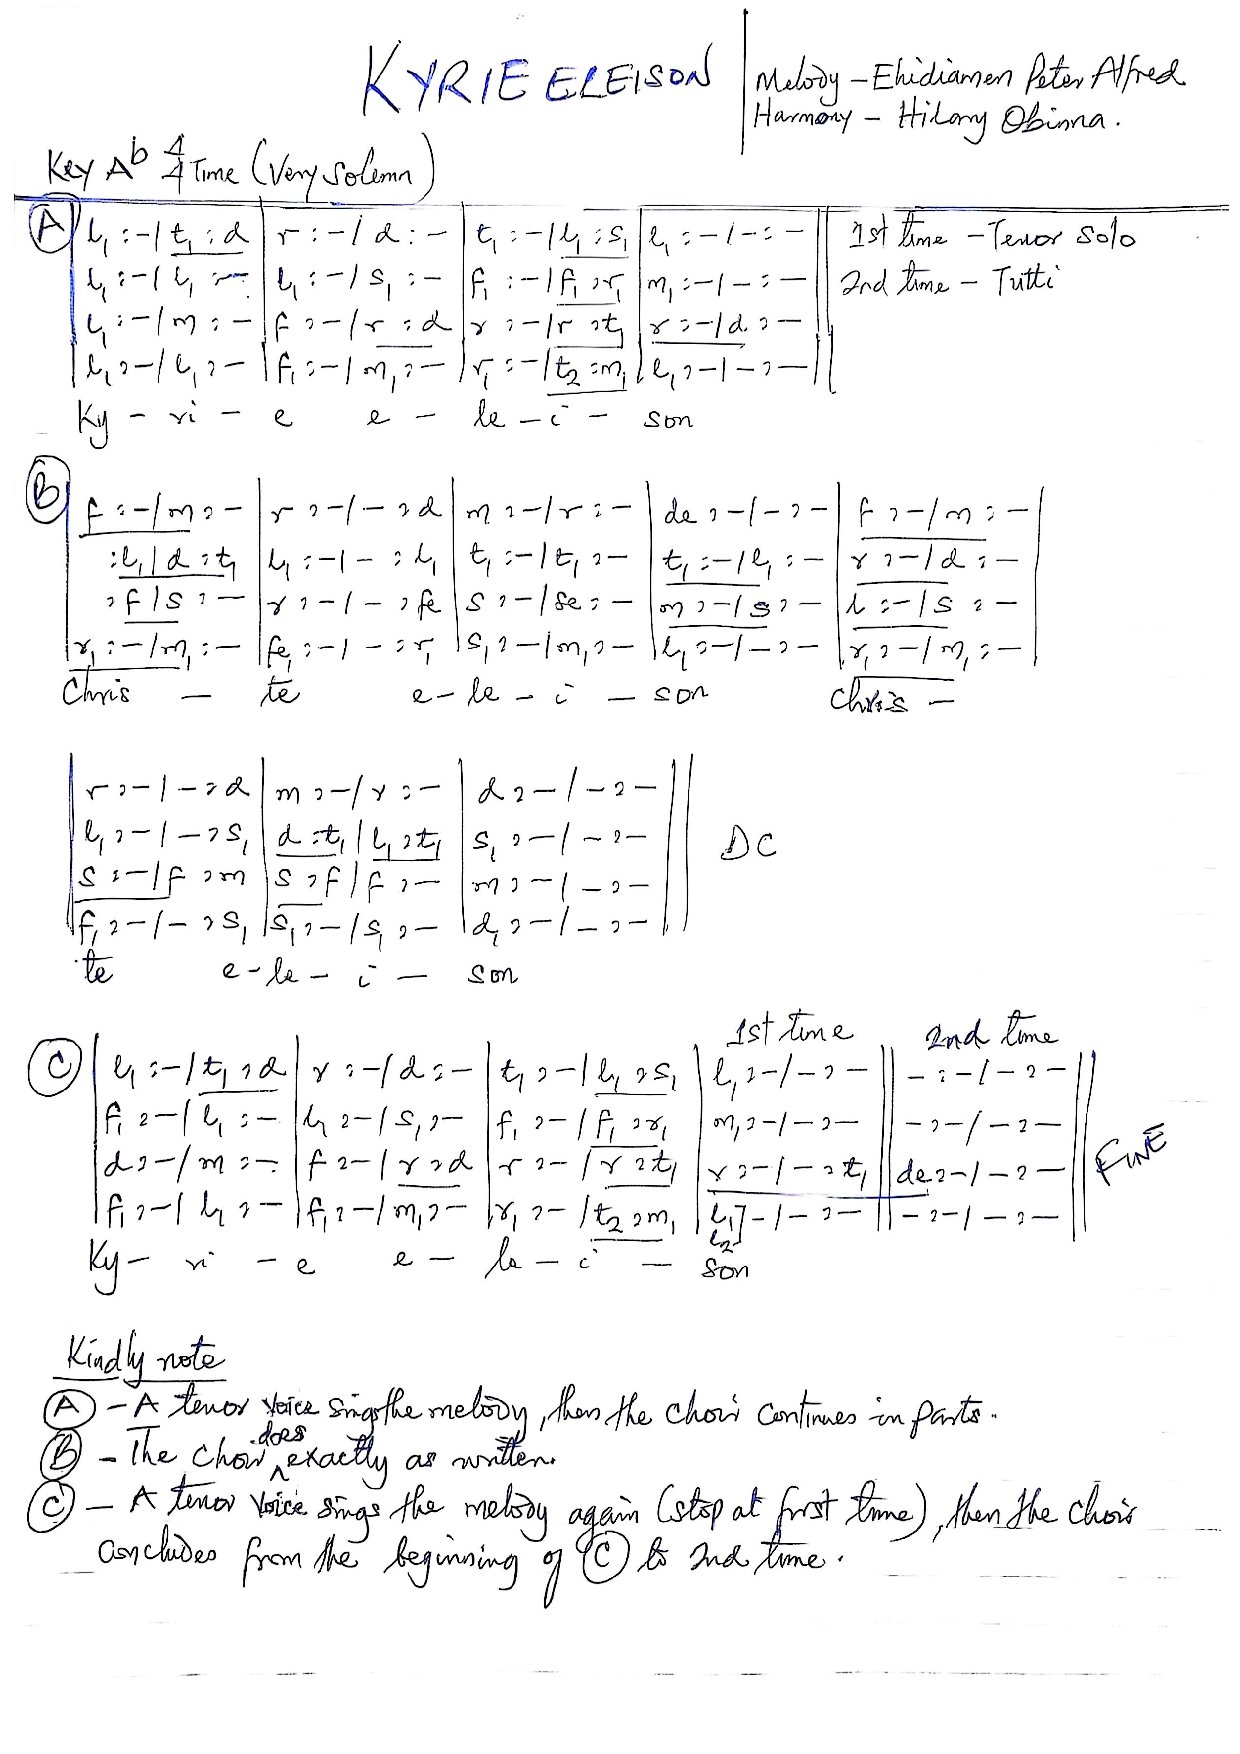 KYRIE ELEISON
Melody - Ehidiamen Peter Alfred
Harmony - Hilary Obinna.
Key Ab 4/4 Time (Very Solemn)
A
l₁ :-/ t₁ : d | r :-/ d :- | t₁ :-/ l₁ : s₁ | l₁ :-/- :- || 1st time - Tenor Solo
l₁ :-/ l₁ :- | l₁ :-/ s₁ :- | f₁ :-/ f₁ : r₁ | m₁ :-/- :- || 2nd time - Tutti
l₁ :-/ m :- | f :-/ r : d | r :-/ r : t₁ | r :-/ d :-
l₁ :-/ l₁ :- | f₁ :-/ m₁ :- | r₁ :-/ t₂ : m₁ | l₁ :-/- :- ||
Ky - ri - e e - le - i - son
B
f :-/ m :- | r :-/- : d | m :-/ r :- | de :-/- :- | f :-/ m :- |
: l₁ / d : t₁ | l₁ :-/- : l₁ | t₁ :-/ t₁ :- | t₁ :-/ l₁ :- | r :-/ d :-
: f / s :- | r :-/- : fe | s :-/ se :- | m :-/ s :- | l :-/ s :-
r₁ :-/ m₁ :- | fe₁ :-/- : r₁ | s₁ :-/ m₁ :- | l₁ :-/- :- | r₁ :-/ m₁ :- |
Chris - te e - le - i - son Chris -
r :-/- : d | m :-/ r :- | d :-/- :- ||
l₁ :-/- : s₁ | d : t₁ / l₁ : t₁ | s₁ :-/- :- DC
s :-/ f : m | s : f / f :- | m :-/- :-
f₁ :-/- : s₁ | s₁ :-/ s₁ :- | d₁ :-/- :- ||
te e - le - i - son
1st time 2nd time
C
l₁ :-/ t₁ : d | r :-/ d :- | t₁ :-/ l₁ : s₁ | l₁ :-/- :- || - :-/- :- ||
f₁ :-/ l₁ :- | l₁ :-/ s₁ :- | f₁ :-/ f₁ : r₁ | m₁ :-/- :- || - :-/- :-
d :-/ m :- | f :-/ r : d | r :-/ r : t₁ | r :-/- : t₁ || de :-/- :- FINE
f₁ :-/ l₁ :- | f₁ :-/ m₁ :- | r₁ :-/ t₂ : m₁ | l₁] -/- :- || - :-/- :- ||
l₂]
Ky - ri - e e - le - i - son
Kindly note
A - A tenor voice sings the melody, then the choir continues in parts.
B - The choir does exactly as written.
C - A tenor voice sings the melody again (stop at first time), then the choir
concludes from the beginning of C to 2nd time.